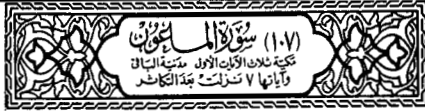 (١٠٧) سُورَة الماعون
مكية ثلاث الآيات الأول مدنية الباقي
وآياتها ٧ نزلت بعد التكاثر